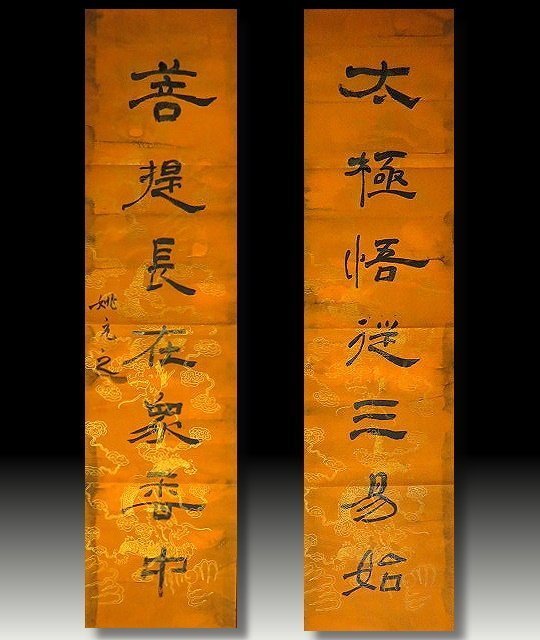 太極悟從三易始
菩提長在眾香中
姚元之